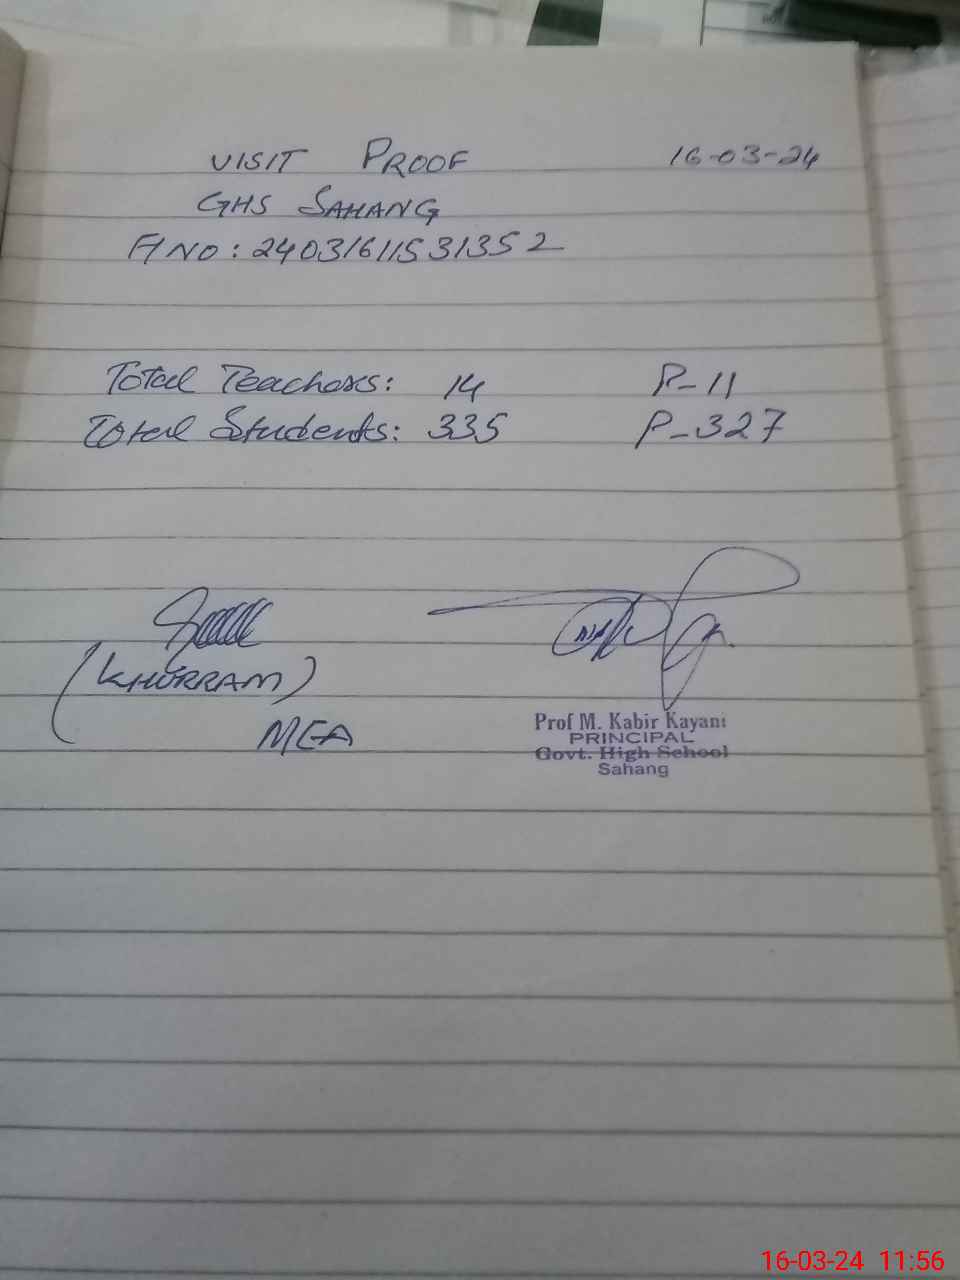 VISIT PROOF 16-03-24
GHS SAHANG
A NO: 24031611531352
Total Teachers: 14 P-11
Total Students: 335 P-327
(KHURRAM)
MEA
Prof M. Kabir Kayani
PRINCIPAL
Govt. High School
Sahang
16-03-24 11:56